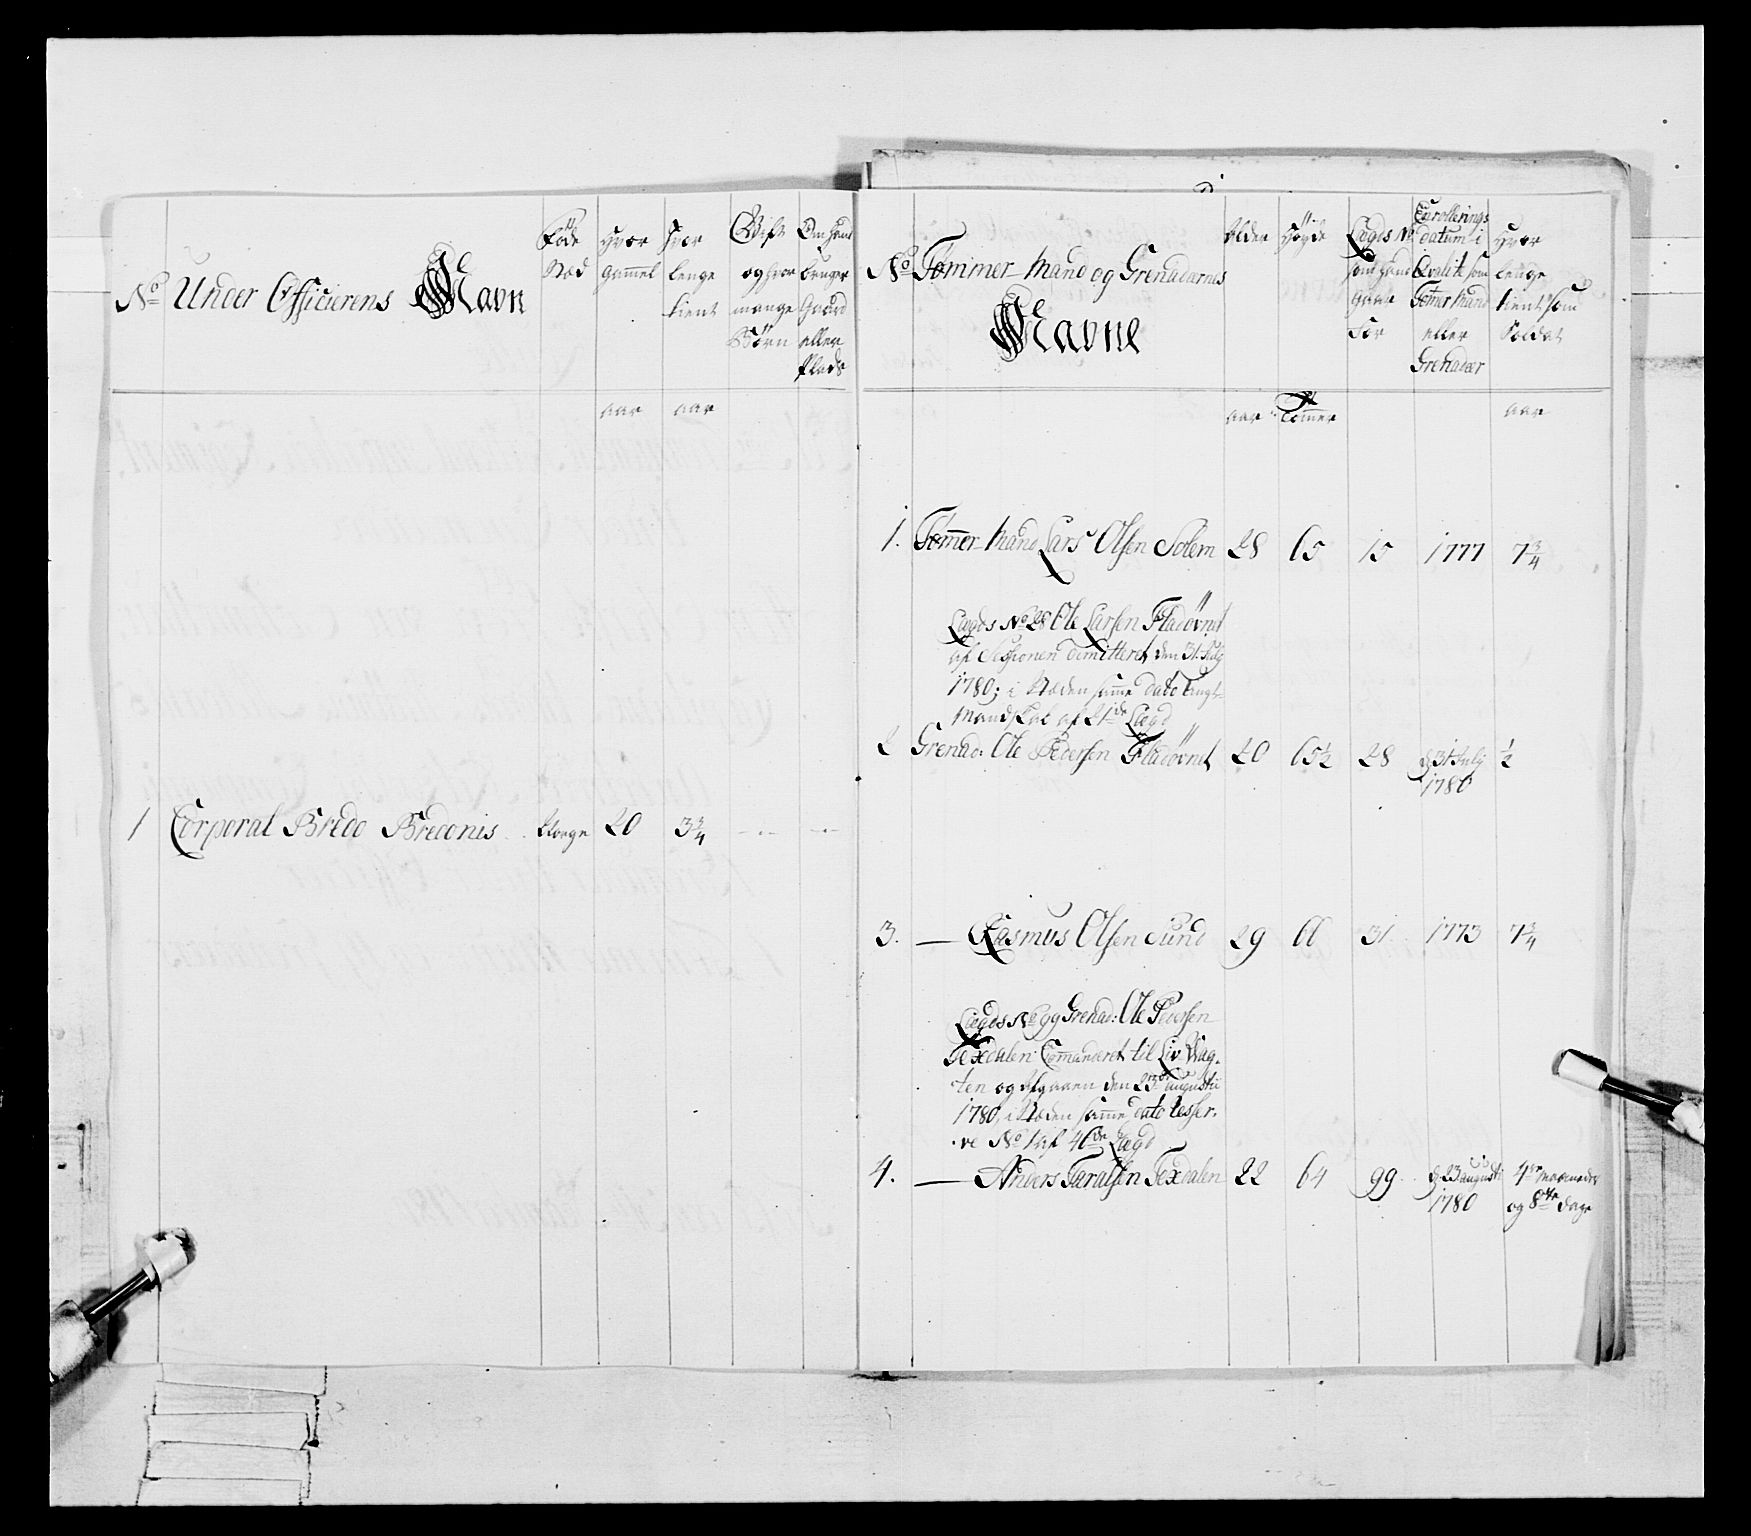 No Under Officierens Navn
Føde Stæd
Hvor gammel
Hvor lenge tient
Gift og hvor mange Børn
Om hand bruger Gaard eller Plads
aar aar
1 Corporal Bredo Bredonis Norge 20 3 3/4
No Tømmer-Mand og Grenaderernes
Navne
Alder
Høyde
Lægds No som hand gaar for
Enrollerings datum i Qvalite som Tømer Mand eller Grenadeer
Hvor lenge tient som Soldat
aar Tommer aar
1. Tømer-Mand Lars Olsen Solem 28 65 15 1777 7 3/4
Lægds No 28 Ole Larsen Fladövnet
af Sessionen dimitteret den 31. July
1780; i Stæden samme dato
Mandskab af 21de Lægd
2 Grenad: Ole Pedersen Fladövnet 20 65 1/2 28 d 31 July 1/2
1780
3. — Rasmus Olsen Sund 29 66 31. 1773 7 3/4
Lægds No 99 Grenad: Ole Pedersen
Texdalen Comanderet til Liv Vag-
ten og afgaaen den 23de augustii
1780, i Stæden samme dato Resser-
ve No 1 af 46de Lægd
4. — Anders Taralsen Texdalen 22 64 99 d. 23 augusti 4re Maaneder
1780 og 8te dage